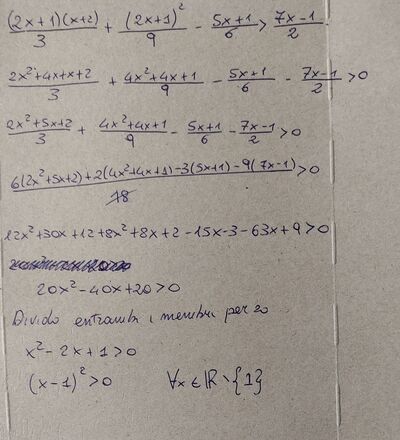 (2x+1)(x+2)/3 + (2x+1)²/9 - 5x+1/6 > 7x-1/2
2x²+4x+x+2/3 + 4x²+4x+1/9 - 5x+1/6 - 7x-1/2 >0
2x²+5x+2/3 + 4x²+4x+1/9 - 5x+1/6 - 7x-1/2 >0
6(2x²+5x+2)+2(4x²+4x+1)-3(5x+1)-9(7x-1)/18 >0
12x²+30x+12+8x²+8x+2-15x-3-63x+9>0
20x²-40x+20>0
Divido entrambi i membri per 20
x²-2x+1>0
(x-1)²>0 ∀x∈ℝ∖{1}